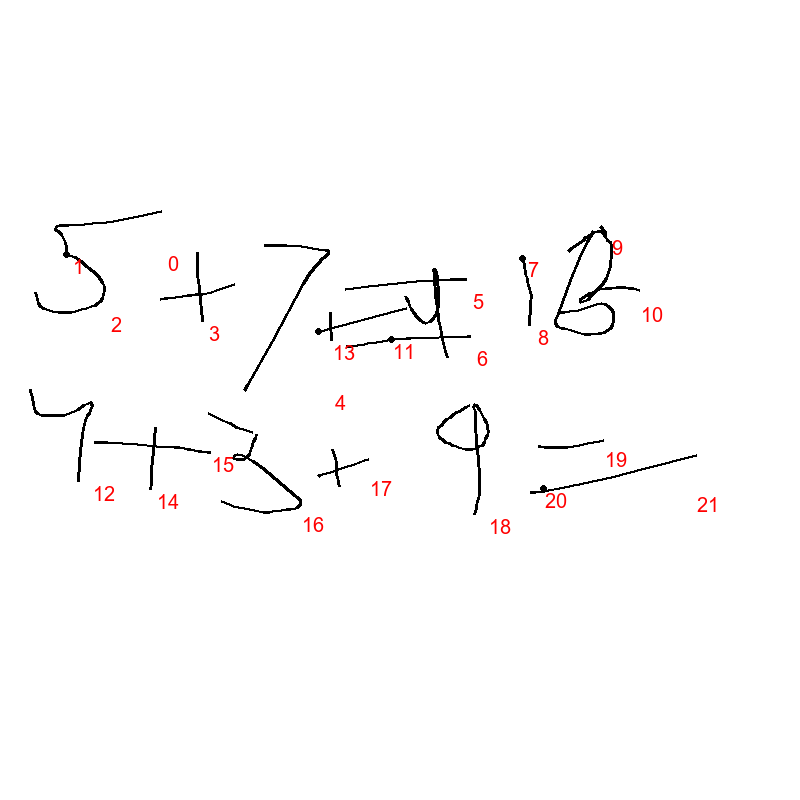 5 + 7 =
4 + 3 + 9 =
0 1 2 3 4 5 6 7 8 9 10 11 12 13 14 15 16 17 18 19 20 21